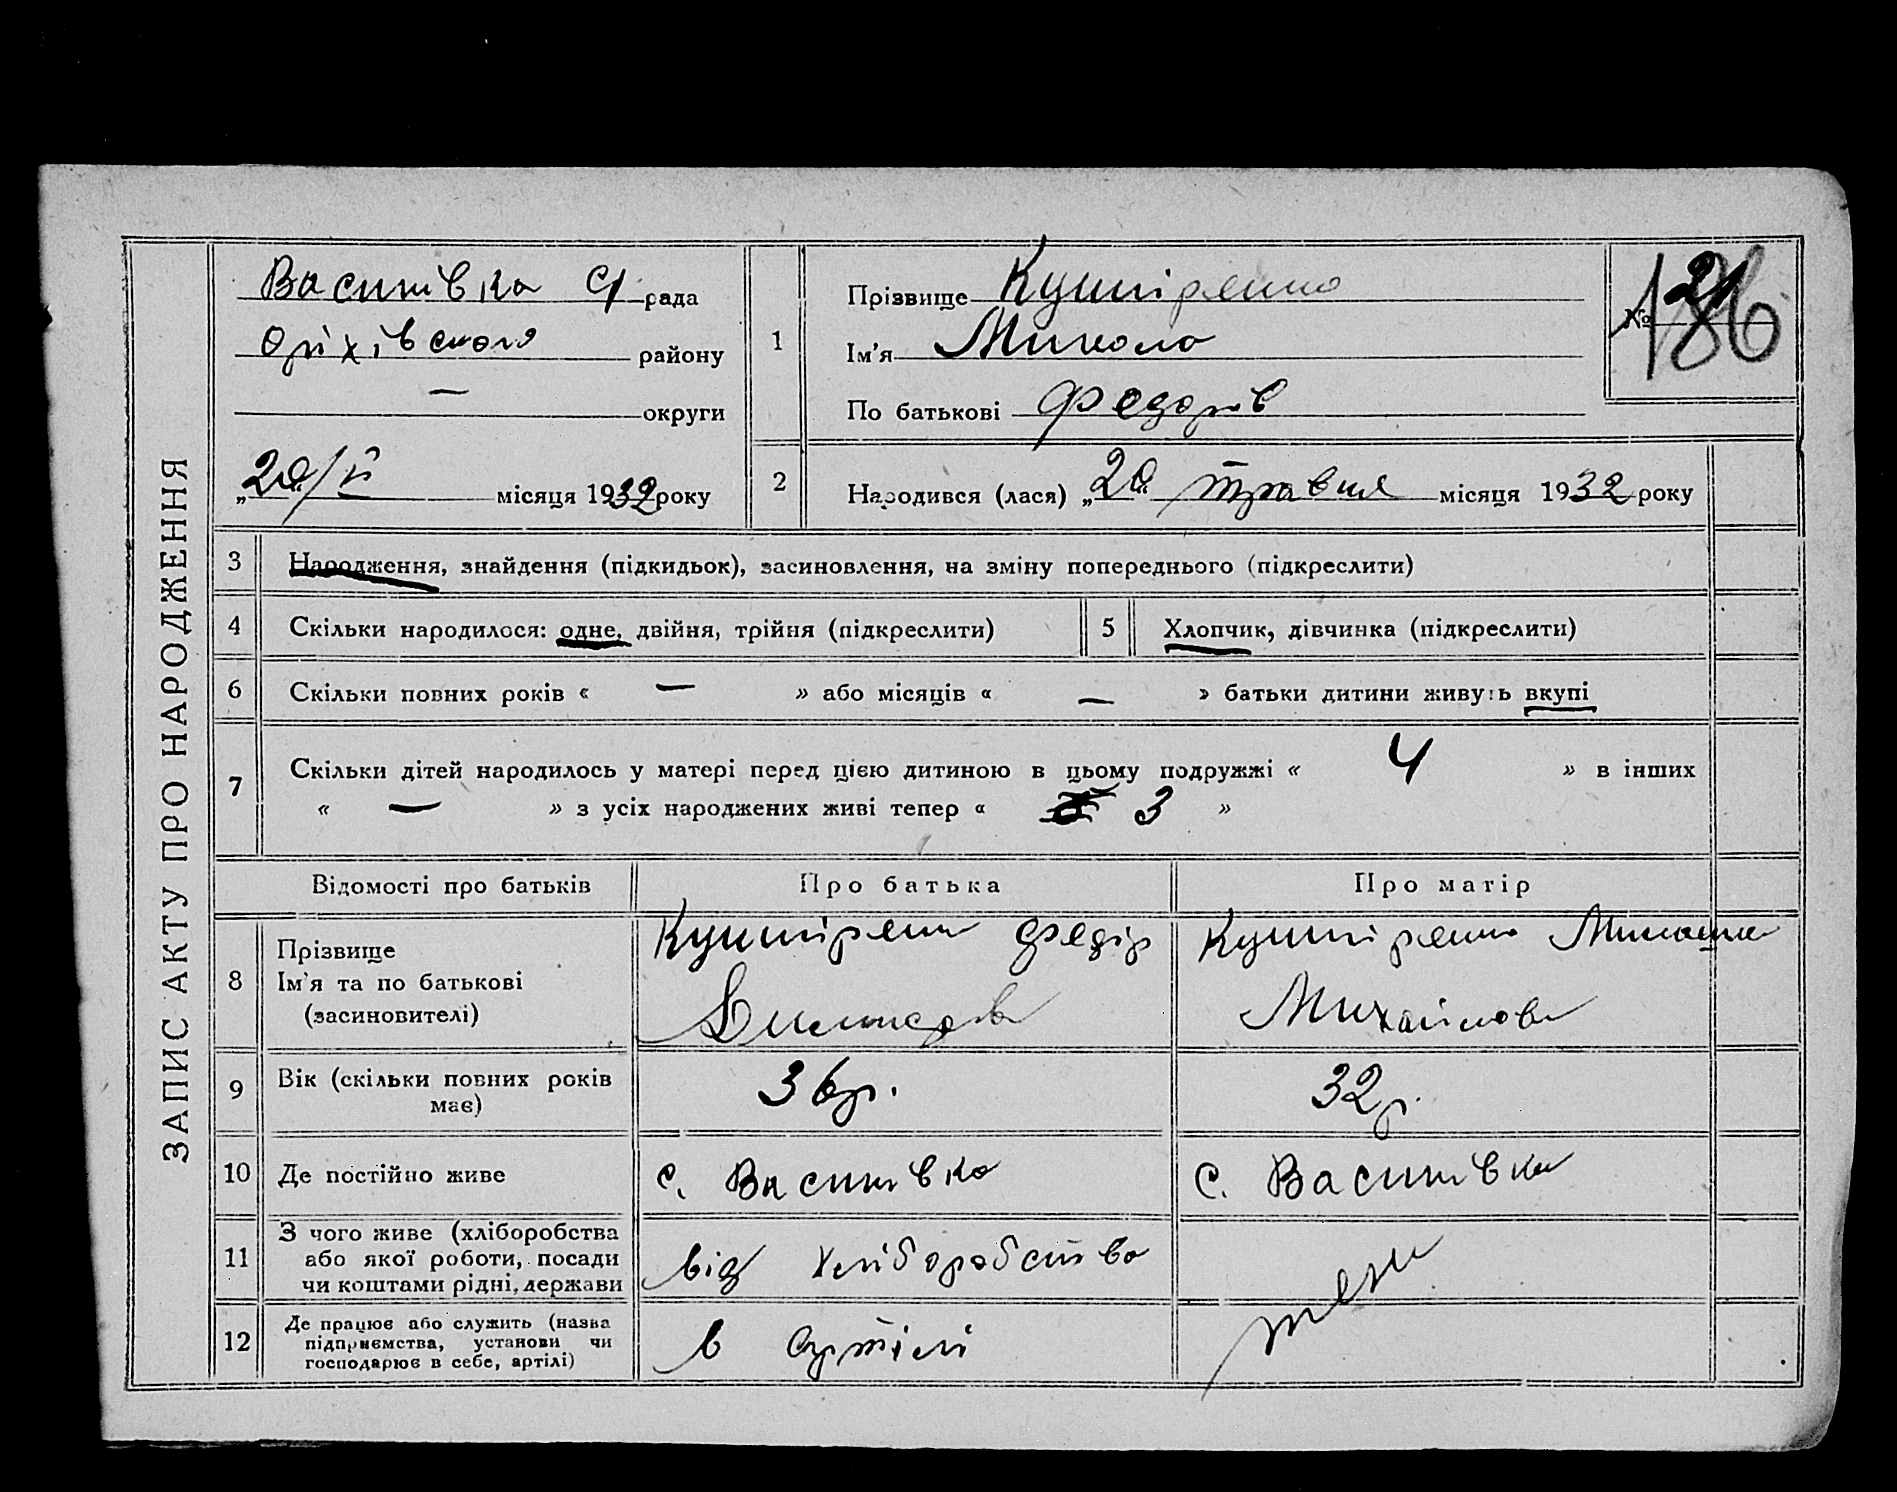 ЗАПИС АКТУ ПРО НАРОДЖЕННЯ
Василівка с/рада
Оріхівського району
— округи
„20“/V місяця 1932 року
1
Прізвище Кушніренко
Ім'я Микола
По батькові Федорів
№ 21
186
2
Народився (лася) „20“ травня місяця 1932 року
3 Народження, знайдення (підкидьок), засиновлення, на зміну попереднього (підкреслити)
4 Скільки народилося: одне, двійня, трійня (підкреслити) 5 Хлопчик, дівчинка (підкреслити)
6 Скільки повних років « — » або місяців « — » батьки дитини живуть вкупі
7 Скільки дітей народилось у матері перед цією дитиною в цьому подружжі « 4 » в інших
« — » з усіх народжених живі тепер « 3 »
Відомості про батьків Про батька Про матір
8 Прізвище
Ім'я та по батькові
(засиновителі)
Кушніренко Федір
Кушніренко
Михайлова
9 Вік (скільки повних років має) 36 р. 32 р.
10 Де постійно живе с. Василівка с. Василівка
11 З чого живе (хліборобства
або якої роботи, посади
чи коштами рідні, держави
від хліборобства
12 Де працює або служить (назва
підприємства, установи чи
господарює в себе, артілі)
в артілі